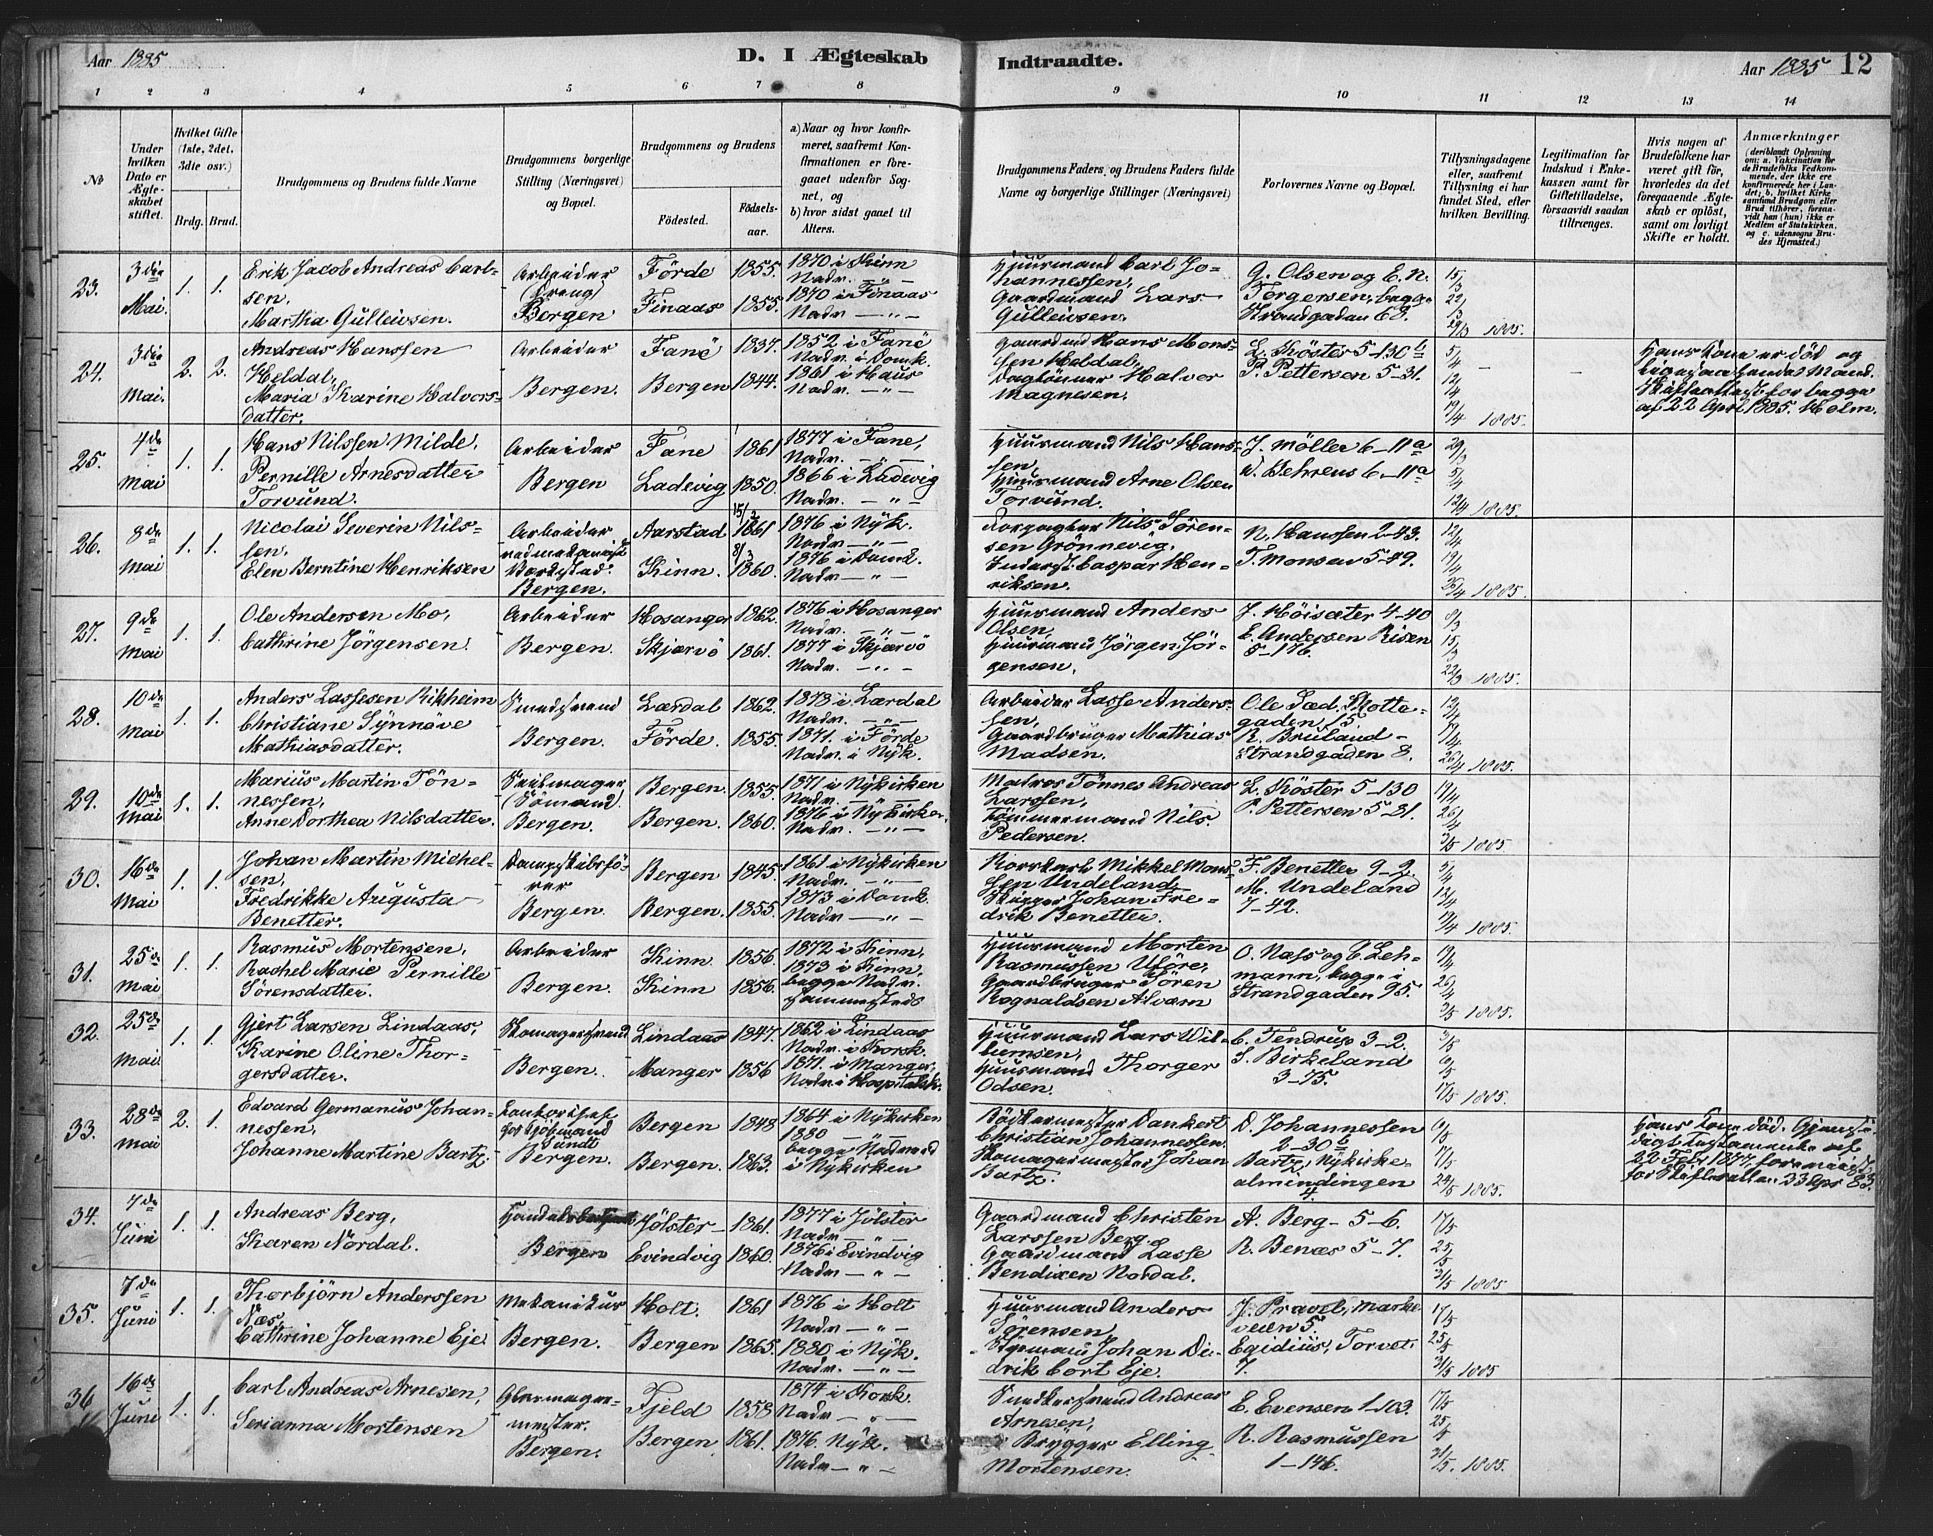 Aar 1885
D. I Ægteskab
Indtraadte.
Aar 1885
12
1 2 3 4 5 6 7 8 9 10 11 12 13 14
No
Under hvilken Dato er Ægteskabet stiftet.
Hvilket Gifte (1ste, 2det, 3die osv.)
Brdg. Brud.
Brudgommens og Brudens fulde Navne
Brudgommens borgerlige Stilling (Næringsvei) og Bopæl.
Brudgommens og Brudens
Fødested.
Fødselsaar.
a) Naar og hvor konfirmeret, saafremt Konfirmationen er foregaaet udenfor Sognet, og
b) hvor sidst gaaet til Alters.
Brudgommens Faders, og Brudens Faders fulde Navne og borgerlige Stillinger (Næringsvei)
Forlovernes Navne og Bopæl.
Tillysningsdagene eller, saafremt Tillysning ei har fundet Sted, efter hvilken Bevilling.
Legitimation for Indskud i Enkekassen samt for Giftetilladelse, forsaavidt saadan tiltrænges.
Hvis nogen af Brudefolkene har været gift før, hvorledes da det foregaaende Ægteskab er opløst, samt om lovligt Skifte er holdt.
Anmærkninger (deriblandt Oplysning om: a. Vakcination for de Brudefolks Vedkommende, der ikke ere konfirmerede her i Landet; b. hvilket Kirkesamfund Brudgom eller Brud tilhører, forsaavidt han (hun) ikke er Medlem af Statskirken, og c. udensogns Brudes Hjemsted.)
23. 3die Mai. 1. 1.
Erik Jacob Andreas Carlsen,
Martha Gulleivsen.
Arbeider (Dreng) Bergen
Förde 1855.
Finaas 1855.
1870 i Kinn
Nadv. — „ —
1870 i Finaas
Nadv. — „ —
Huusmand Carl Johannessen,
Gaardmand Lars Gulleivsen.
G. Olsen og E. N. Torgersen, begge Strandgaden 68.
15/3 22/3 29/3 1885.
24. 3die Mai. 2. 2.
Andreas Hanssen Heldal,
Maria Karine Halvorsdatter.
Arbeider
Bergen.
Fanö 1837.
Bergen 1844.
1852 i Fanö
Nadv. i Domk.
1861 i Haus
Nadv. — „ —
Gaardmd Hans Monssen Heldal,
Daglönner Halvor Magnesen.
L. Köster 5–130 b
P. Pettersen 5–31.
5/4 12/4 19/4 1885.
Hans Kone er död og ligesaa hendes Mand. Skifteattest for begge af 22 April 1885. Holm.
25. 4de Mai 1. 1.
Hans Nilssen Milde,
Pernille Arnesdatter Torvund.
Arbeider
Bergen
Fane 1861
Ladevig 1850.
1877 i Fane,
Nadv. — „ —
1866 i Ladevig
Nadv. — „ —
Huusmand Nils Hanssen,
Huusmand Arne Olsen Torvund.
J. Möller 6–11a
W. Behrens 6–11a
29/3 5/4 12/4 1885.
26. 8de Mai 1. 1.
Nicolai Severin Nilssen,
Elen Berntine Henriksen
Arbeider ved mekanisk Værksted. Bergen.
Aarstad 15/2 1861
Kinn. 8/3 1860.
1876 i Nyk.
Nadv. — „ —
1876 i Domk.
Nadv — „ —
Forpagter Nils Sörensen Grönnevig,
Inderst Caspar Henriksen.
N. Hanssen 2–43.
T. Monsen 5–49.
12/4 19/4 26/4 1885.
27. 9de Mai 1. 1.
Ole Andersen Mo,
Cathrine Jörgensen.
Arbeider
Bergen.
Hosanger 1862.
Skjærvö 1861.
1876 i Hosanger
Nadv. — „ —
1877 i Skjærvö
Nadv. — „ —
Huusmand Anders Olsen,
Huusmand Jörgen Jörgensen.
J. Höisæter 4–40
E. Andersen Risen 5–176.
8/3 15/3 22/3 1885.
28. 10de Mai 1. 1.
Anders Lassesen Rikheim
Christiane Synnöve Mathiasdatter.
Smedsvend
Bergen.
Lærdal 1862.
Förde. 1855.
1878 i Lærdal
Nadv. — „ —
1871. i Förde
Nadv. i Nyk.
Arbeider Lasse Anderssen,
Gaardbruger Mathias Madsen.
Ole Sæd. Skottegaden 15.
R. Bruland – Strandgaden 8.
12/4 19/4 26/4 1885.
29. 10de Mai 1. 1.
Marius Martin Tönnessen,
Anne Dorthea Nilsdatter.
Seilmager (Sömand) Bergen.
Bergen. 1855.
Bergen. 1860.
1871 i Nykirken
Nadv. — „ —
1876 i Nykirken.
Nadv. — „ —
Matros Tönnes Andreas Larssen,
Tömmermand Nils Pedersen.
L. Köster 5–130
P. Pettersen 5–31.
19/4 26/4 3/5 1885.
30. 16de Mai 1. 1.
Johan Martin Michelsen,
Fredrikke Augusta Benetter.
Dampskibsförer
Bergen.
Bergen 1845.
Bergen. 1855.
1861 i Nykirken
Nadv. — „ —
1873 i Domk.
Nadv. — „ —
Korskarl Mikkel Monssen Undeland,
Skipper Johan Fredrik Benetter.
F. Benetter 9–2.
M. Undeland 7–42.
5/4 12/4 19/4 1885.
31. 25de Mai 1. 1.
Rasmus Mortensen,
Rachel Marie Pernille Sörensdatter.
Arbeider
Bergen.
Kinn 1856
Kinn 1856.
1872 i Kinn,
1873 i Kinn,
begge Nadv. sammesteds
Huusmand Morten Rasmussen Uföre,
Gaardbruger Sören Rognaldsen Alværn
O. Næss og C. Lehmann, begge i Strandgaden 95.
19/4 26/4 3/5 1885.
32. 25de Mai 1. 1.
Gjert Larsen Lindaas,
Karine Oline Thorgersdatter.
Skomagersvend
Bergen.
Lindaas 1847.
Manger 1856
1862 i Lindaas
Nadv. i Korsk.
1871. i Manger,
Nadv. i Hospitalsk.
Huusmand Lars Wilhemsen,
Huusmand Thorger Odsen.
C. Tendrup 3–2.
S. Birkeland 3–75.
3/5 10/5 17/5 1885.
33. 28de Mai 2. 1.
Edvard Germanus Johannessen,
Johanne Martine Bartz.
Kontorist hos Kjöbmand Sundt Bergen.
Bergen 1848
Bergen. 1863.
1864 i Nykirken
1880 — „ —
begge Nadverd i Nykirken
Bödkermester Dankert Christian Johannessen.
Skomagermester Johan Bartz.
D. Johannessen 2–30 b
Bartz, Nykirkealmindingen 4.
10/5 17/5 24/5 1885.
Hans Kone död. Gjensidigt Testamente af 22 Feb. 1877,
34. 7de Juni 1. 1.
Andreas Berg,
Karen Nordal.
Bergen
Jölster 1861.
Evindvig 1860.
1877 i Jölster
Nadv. — „ —
1876 i Evindvig
Nadv. — „ —
Gaardmand Christen Larssen Berg.
Gaardmand Lasse Bendixen Nordal.
A. Berg – 5–6.
R. Benæs 5–7.
17/5 25/5 31/5 1885.
35. 7de Juni 1. 1.
Thorbjörn Anderssen Næs,
Cathrine Johanne Eje.
Mekanikus
Bergen.
Holt. 1861
Bergen 1865.
1876 i Holt
Nadv. — „ —
1880 i Nyk.
Nadv. — „ —
Huusmand Anders Sörensen,
Styrmand Johan Didrik Cort Eje.
J. Pravel, Markeveien 5.
Egidius, Torvet 7.
17/5 25/5 31/5 1885
36 16de Juni 1. 1.
Carl Andreas Arnesen,
Serianna Mortensen
Glarmagermester.
Bergen.
Fjeld 1858
Bergen 1861.
1874 i Korsk.
Nadv — „ —
1876. Nyk.
Nadv — „ —
Andreas Arnesen,
Brygger Elling Mortensen.
E. Evensen 1–103.
R. Rasmussen 1–146.
17/5 25/5 31/5. 1885.